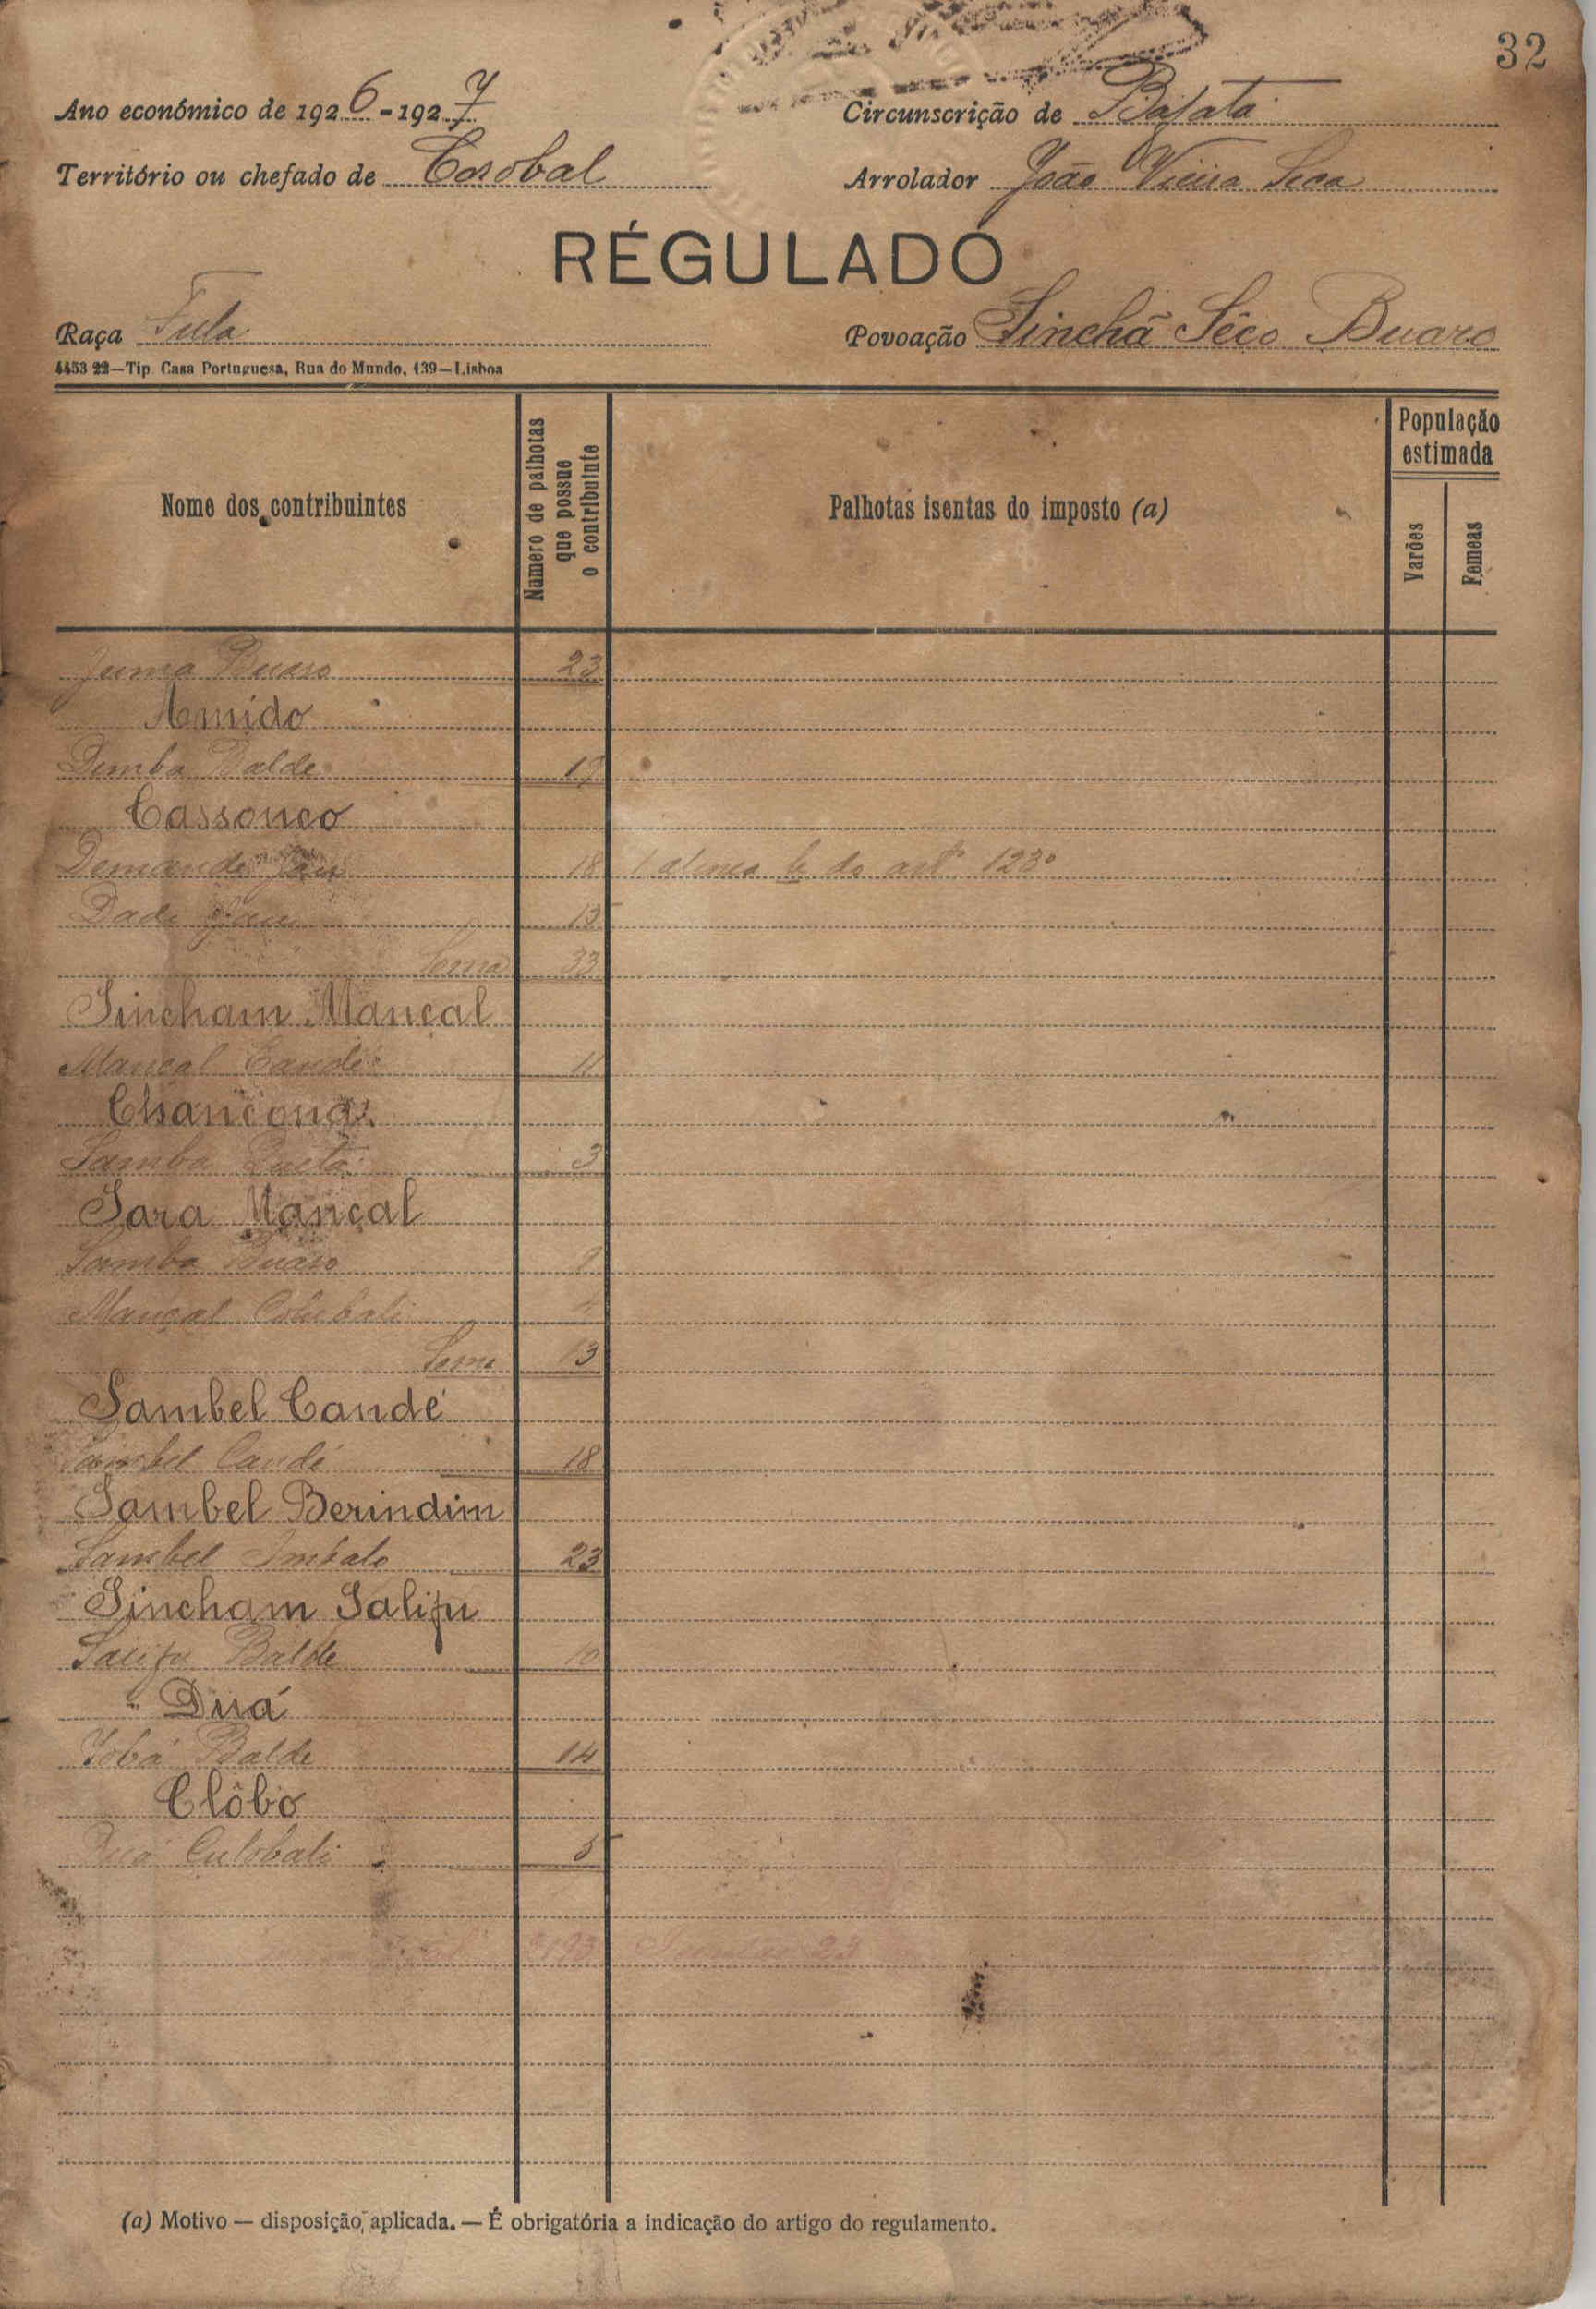 32
Ano económico de 1926-1927
Circunscrição de Bafatá
Território ou chefado de Corobal
Arrolador João Vieira Seca
RÉGULADO
Raça Fula
Povoação Sinchã Sêco Buaro
4453 22—Tip. Casa Portuguesa, Rua do Mundo, 139—Lisboa
Nome dos contribuintes
Numero de palhotas que possue o contribuinte
Palhotas isentas do imposto (a)
População estimada
Varões
Femeas
Juma Buaro 23
Amido
Demba Balde
Cassonco
18 1 alinea b do artº 123º
15
Soma 33
Sincham Mancal
Mancal Candé 11
Samba 3
Sara Mançal
Samba Buaro 9
Mançal
Soma 13
Sambel Candé
Sambel Candé 18
Sambel Berindim
Sambel Imbalo 23
Sincham Salifu
Salifu Balde 10
Duá
Balde 14
Clôbo
Duá Culobali 5
(a) Motivo — disposição aplicada. — É obrigatória a indicação do artigo do regulamento.